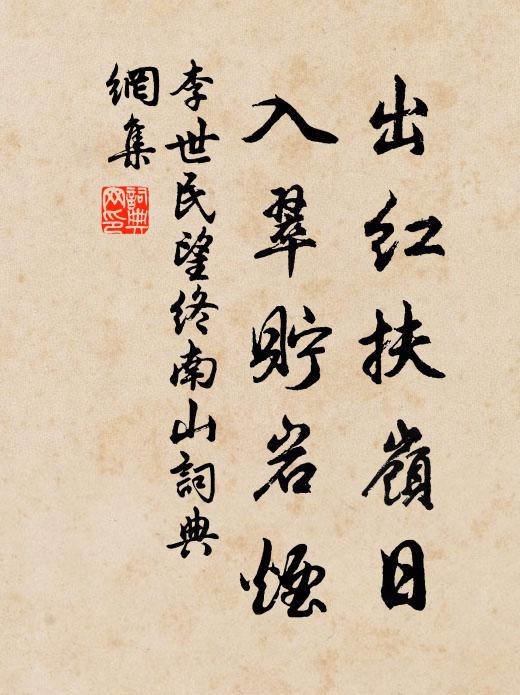 出红扶嶺日
入翠貯岩煙
李世民望终南山詞典
網集
詞典
网印